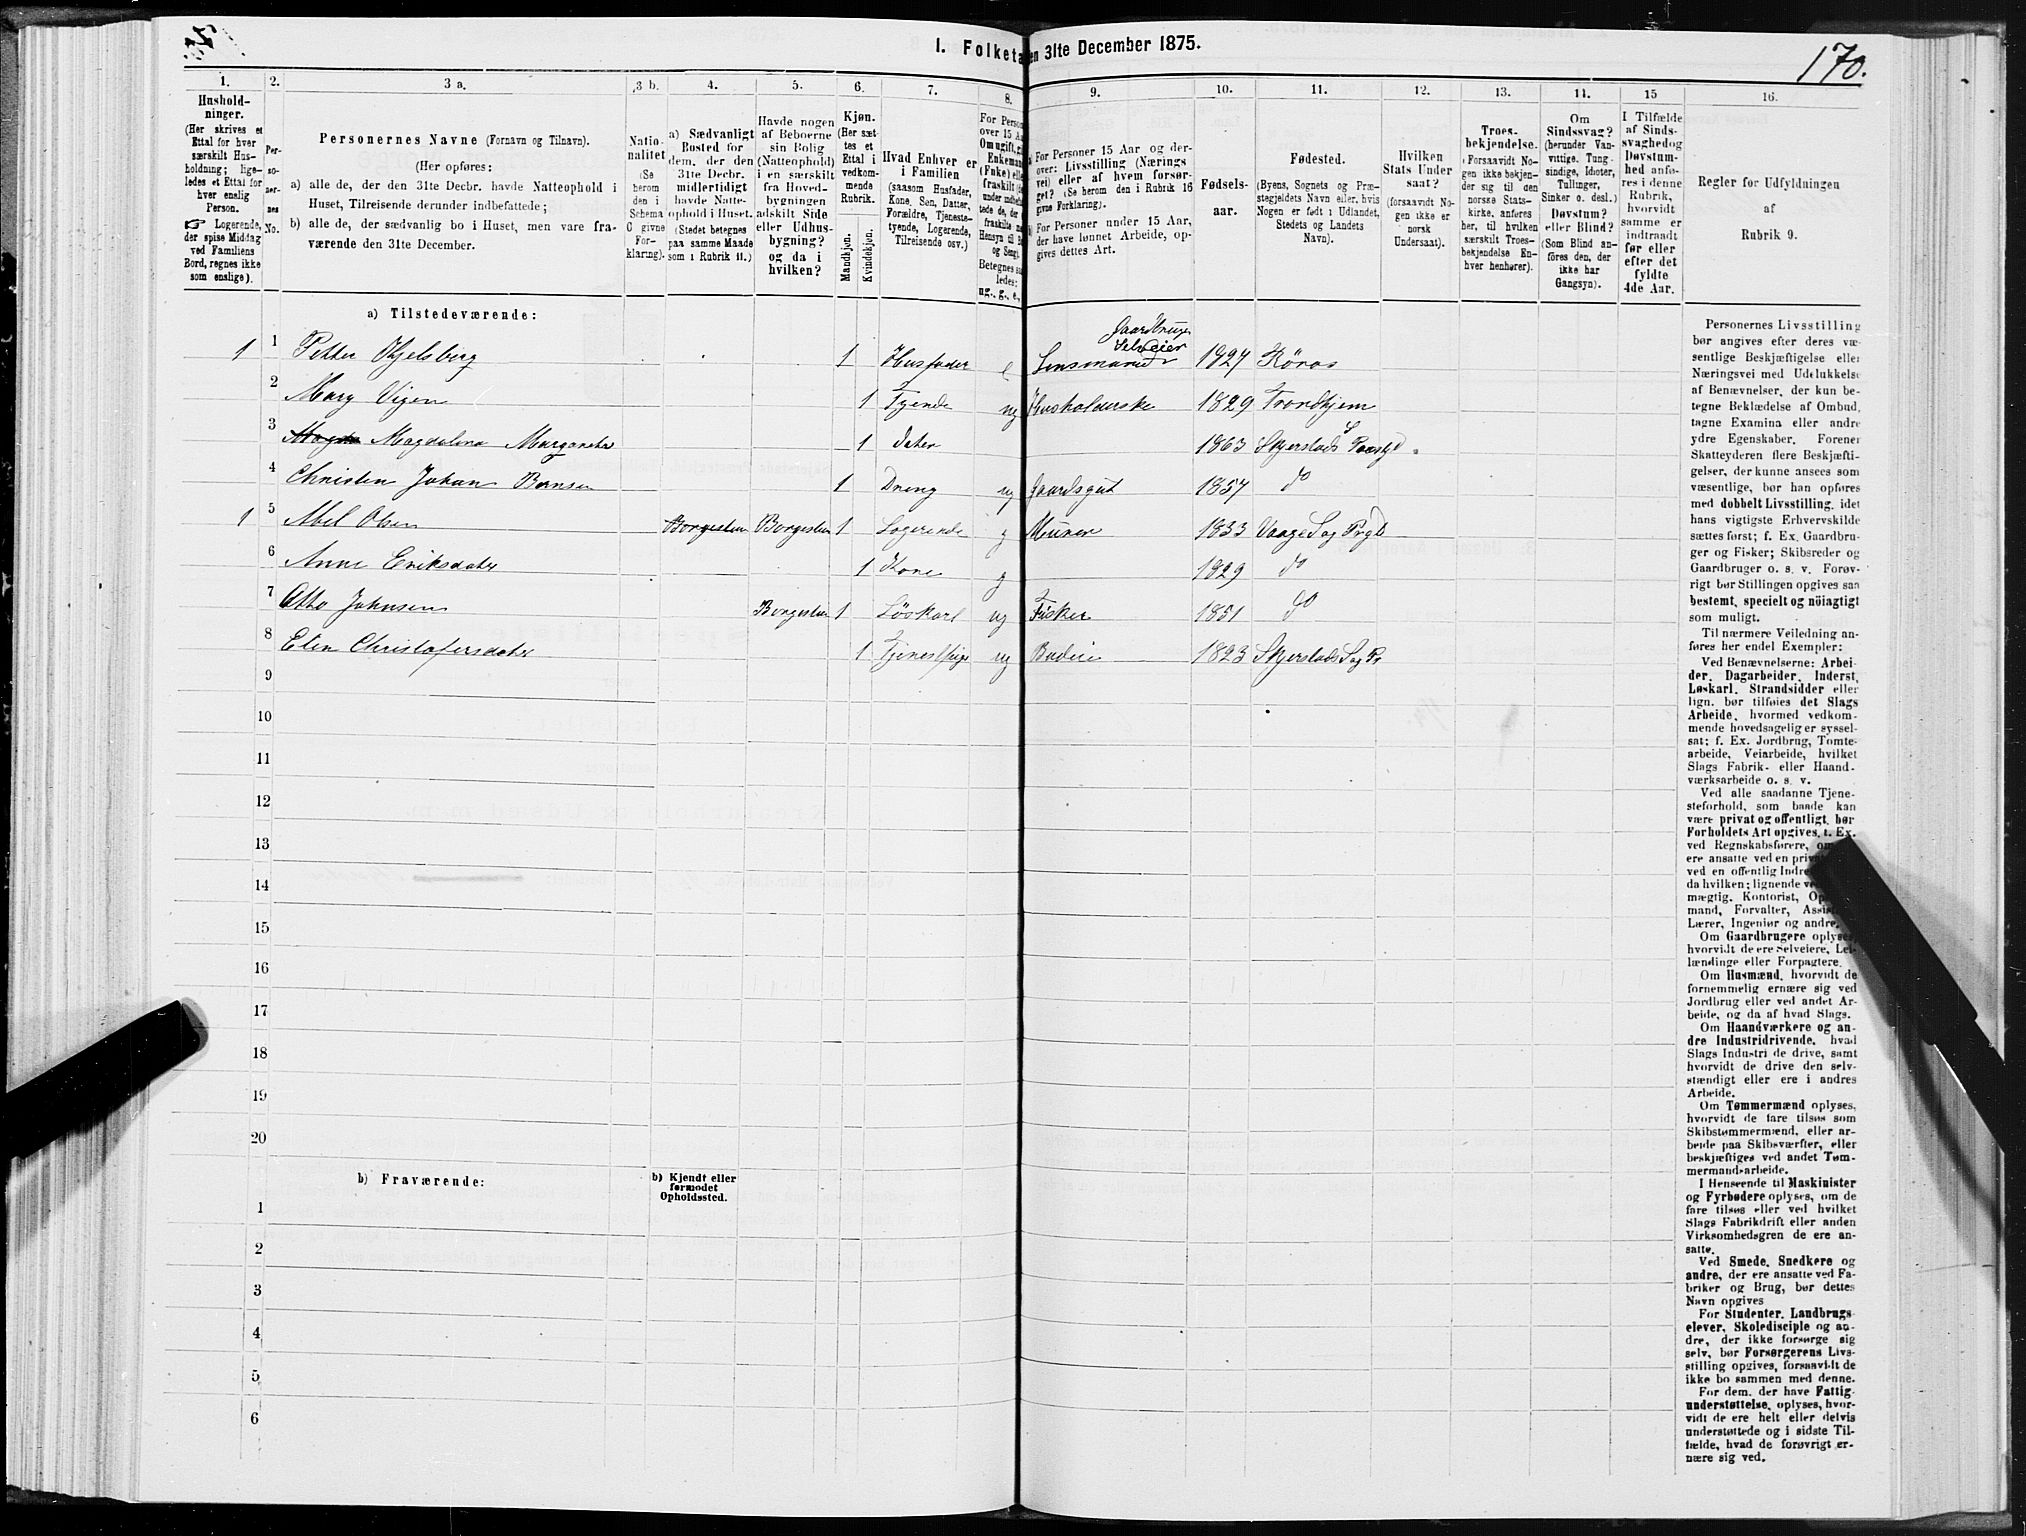 I. Folketæ
en 31te December 1875.
170.
1.
Hushold-
ninger.
(Her skrives et
Ettal for hver
særskilt Hus-
holdning; lige-
ledes et Ettal for
hver enslig
Person.
☞ Logerende,
der spise Middag
ved Familiens
Bord, regnes ikke
som enslige).
2.
Per-
so-
ner-
nes
No.
3 a.
Personernes Navne (Fornavn og Tilnavn).
(Her opføres:
a) alle de, der den 31te Decbr. havde Natteophold i
Huset, Tilreisende derunder indbefattede;
b) alle de, der sædvanlig bo i Huset, men vare fra-
værende den 31te December.
3 b.
Natio-
nalitet
(Se
herom
den i
Schema
C givne
For-
klaring).
4.
a) Sædvanligt
Bosted for
dem, der den
31te Decbr.
midlertidigt
havde Natte-
ophold i Huset.
(Stedet betegnes
paa samme Maade
som i Rubrik 11.)
5.
Havde nogen
af Beboerne
sin Bolig
(Natteophold)
i en særskilt
fra Hoved-
bygningen
adskilt Side
eller Udhus-
bygning?
og da i
hvilken?
6.
Kjøn.
(Her sæt-
tes et
Ettal i
vedkom-
mende
Rubrik.
Mandkjøn.
Kvindekjøn.
7.
Hvad Enhver er
i Familien
(saasom Husfader,
Kone, Søn, Datter,
Forældre, Tjeneste-
tyende, Logerende,
Tilreisende osv.)
8.
For Person
over 15 Aa
Om ugift, gi
Enkemand
(Enke) elle
fraskilt
ledes:
ug., g., e.,
9.
a) For Personer 15 Aar og der-
over: Livsstilling (Nærings
vei) eller af hvem forsør-
get? (Se herom den i Rubrik 16
givne Forklaring).
b) For Personer under 15 Aar,
der have lønnet Arbeide, op-
gives dettes Art.
10.
Fødsels-
aar.
11.
Fødested.
(Byens, Sognets og Præ-
stegjeldets Navn eller, hvis
Nogen er født i Udlandet,
Stedets og Landets
Navn).
12.
Hvilken
Stats Under
saat?
(forsaavidt No-
gen ikke er
norsk
Undersaat).
13.
Troes-
bekjendelse.
(Forsaavidt No-
gen ikke bekjen-
der sig til den
norske Stats-
kirke, anføres
her, til hvilken
særskilt Troes-
bekjendelse En-
hver henhører).
14.
Om
Sindssvag?
(herunder Van-
vittige, Tung-
sindige, Idioter,
Tullinger,
Sinker o. desl.)
Døvstum?
eller Blind?
(Som Blind an-
føres den, der
ikke har
Gangsyn).
15
I Tilfælde
af Sinds-
svaghed og
Døvstum-
hed anfø-
res i denne
Rubrik,
hvorvidt
samme er
indtraadt
før eller
efter det
fyldte
4de Aar.
16.
Regler for Udfyldningen
af
Rubrik 9.
a) Tilstedeværende:
1 1 Petter Hjelsberg 1 Husfader e Gaardbruger Selveier Lensmand 1827 Röros
2 Mary Vigen 1 Tyende ug Husholderske 1829 Trondhjem
3 Magda Magdalena Margareta 1 dater 1863 Skjerstads Præstgd.
4 Christen Johan Bensen 1 Dreng ug Gaardsgut 1857 do
1 5 Abel Olsen Borgestuen Borgestuen 1 Logerende g Murer 1833 Vaage Sog Prgld
6 Anne Eriksdater 1 Kone g 1829 do
7 Otto Johnsen Borgestuen 1 Löskarl ug Fisker 1851 do
8 Elen Christofersdater 1 Tjenestpige ug Budeie 1823 Skjerstads Sog Pr
9
10
11
12
13
14
15
16
17
18
19
20
b) Fraværende:
b) Kjendt eller
formodet
Opholdssted.
1
2
3
4
5
6
Personernes Livsstilling
bør angives efter deres væ
sentlige Beskjæftigelse eller
Næringsvei med Udelukkelse
af Benævnelser, der kun be-
tegne Beklædelse af Ombud,
tagne Examina eller andre
ydre Egenskaber. Forener
Skatteyderen flere Beskjæfti-
gelser, der kunne ansees som
væsentlige, bør han opføres
med dobbelt Livsstilling, idet
hans vigtigste Erhvervskilde
sættes først; f. Ex. Gaardbru-
ger og Fisker; Skibsreder og
Gaardbruger o. s. v. Forøv-
rigt bør Stillingen opgives saa
bestemt, specielt og nöiagtigt
som muligt.
Til nærmere Veiledning an-
føres her endel Exempler:
Ved Benævnelserne: Arbei-
der, Dagarbeider, Inderst,
Løskarl, Strandsidder eller
lign. bør tilføies det Slags
Arbeide, hvormed vedkom-
mende hovedsagelig er syssel-
sat; f. Ex. Jordbrug, Tomte-
arbeide, Veiarbeide, hvilket
Slags Fabrik- eller Haand-
værksarbeide o. s. v.
Ved alle saadanne Tjene-
steforhold, som baade kan
være privat og offentligt, bør
Forholdets Art opgives, f. Ex.
ved Regnskabsførere, om
ere ansatte ved en privat
ved en offentlig Indre
da hvilken; lignende ved
mægtig, Kontorist, Op
mand, Forvalter, Assist
Lærer, Ingeniør og andre.
Om Gaardbrugere oplyses,
hvorvidt de ere Selveiere, Lei-
lændinge eller Forpagtere.
Om Husmænd, hvorvidt de
fornemmelig ernære sig ved
Jordbrug eller ved andet Ar-
beide, og da af hvad Slags.
Om Haandværkere og an-
dre Industridrivende, hvad
Slags Industri de drive, samt
hvorvidt de drive den selv-
stændigt eller ere i andres
Arbeide.
Om Tømmermænd oplyses,
hvorvidt de fare tilsøs som
Skibstømmermænd, eller ar-
beide paa Skibsværfter, eller
beskjæftiges ved andet Tøm-
mermandsarbeide.
I Henseende til Maskinister
og Fyrbødere oplyses, om de
fare tilsøs eller ved hvilket
Slags Fabrikdrift eller anden
Virksomhedsgren de ere an-
satte.
Ved Smede, Snedkere og
andre, der ere ansatte ved Fa-
briker og Brug, bør dettes
Navn opgives
For Studenter, Landbrugs-
elever, Skoledisciple og an-
dre, der ikke forsørge sig
selv, bør Forsørgerens Livs-
stilling opgives, forsaavidt de
ikke bo sammen med denne.
For dem, der have Fattig-
understøttelse, oplyses, hvor-
vidt de ere helt eller delvis
understøttede og i sidste Til-
fælde, hvad de forøvrigt er-
nære sig ved.